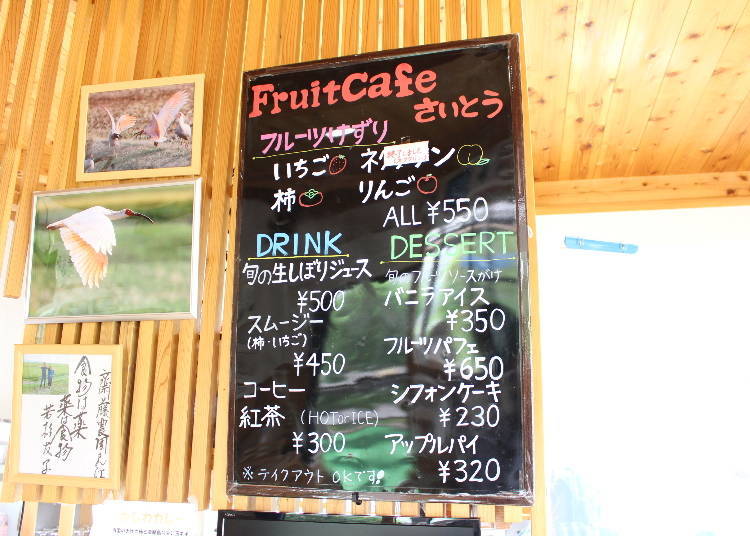 FruitCafe
さいとう
フルーツけずり
いちご
終了しました
柿 りんご
ALL ¥550
DRINK
旬の生しぼりジュース
¥500
スムージー
(柿・いちご)
¥450
コーヒー
紅茶 (HOT or ICE)
¥300
※テイクアウトOKです!
DESSERT
旬のフルーツソースがけ
バニラアイス
¥350
フルーツパフェ
¥650
シフォンケーキ
¥230
アップルパイ
¥320
斎藤農園さん江
食物は薬
薬は食物